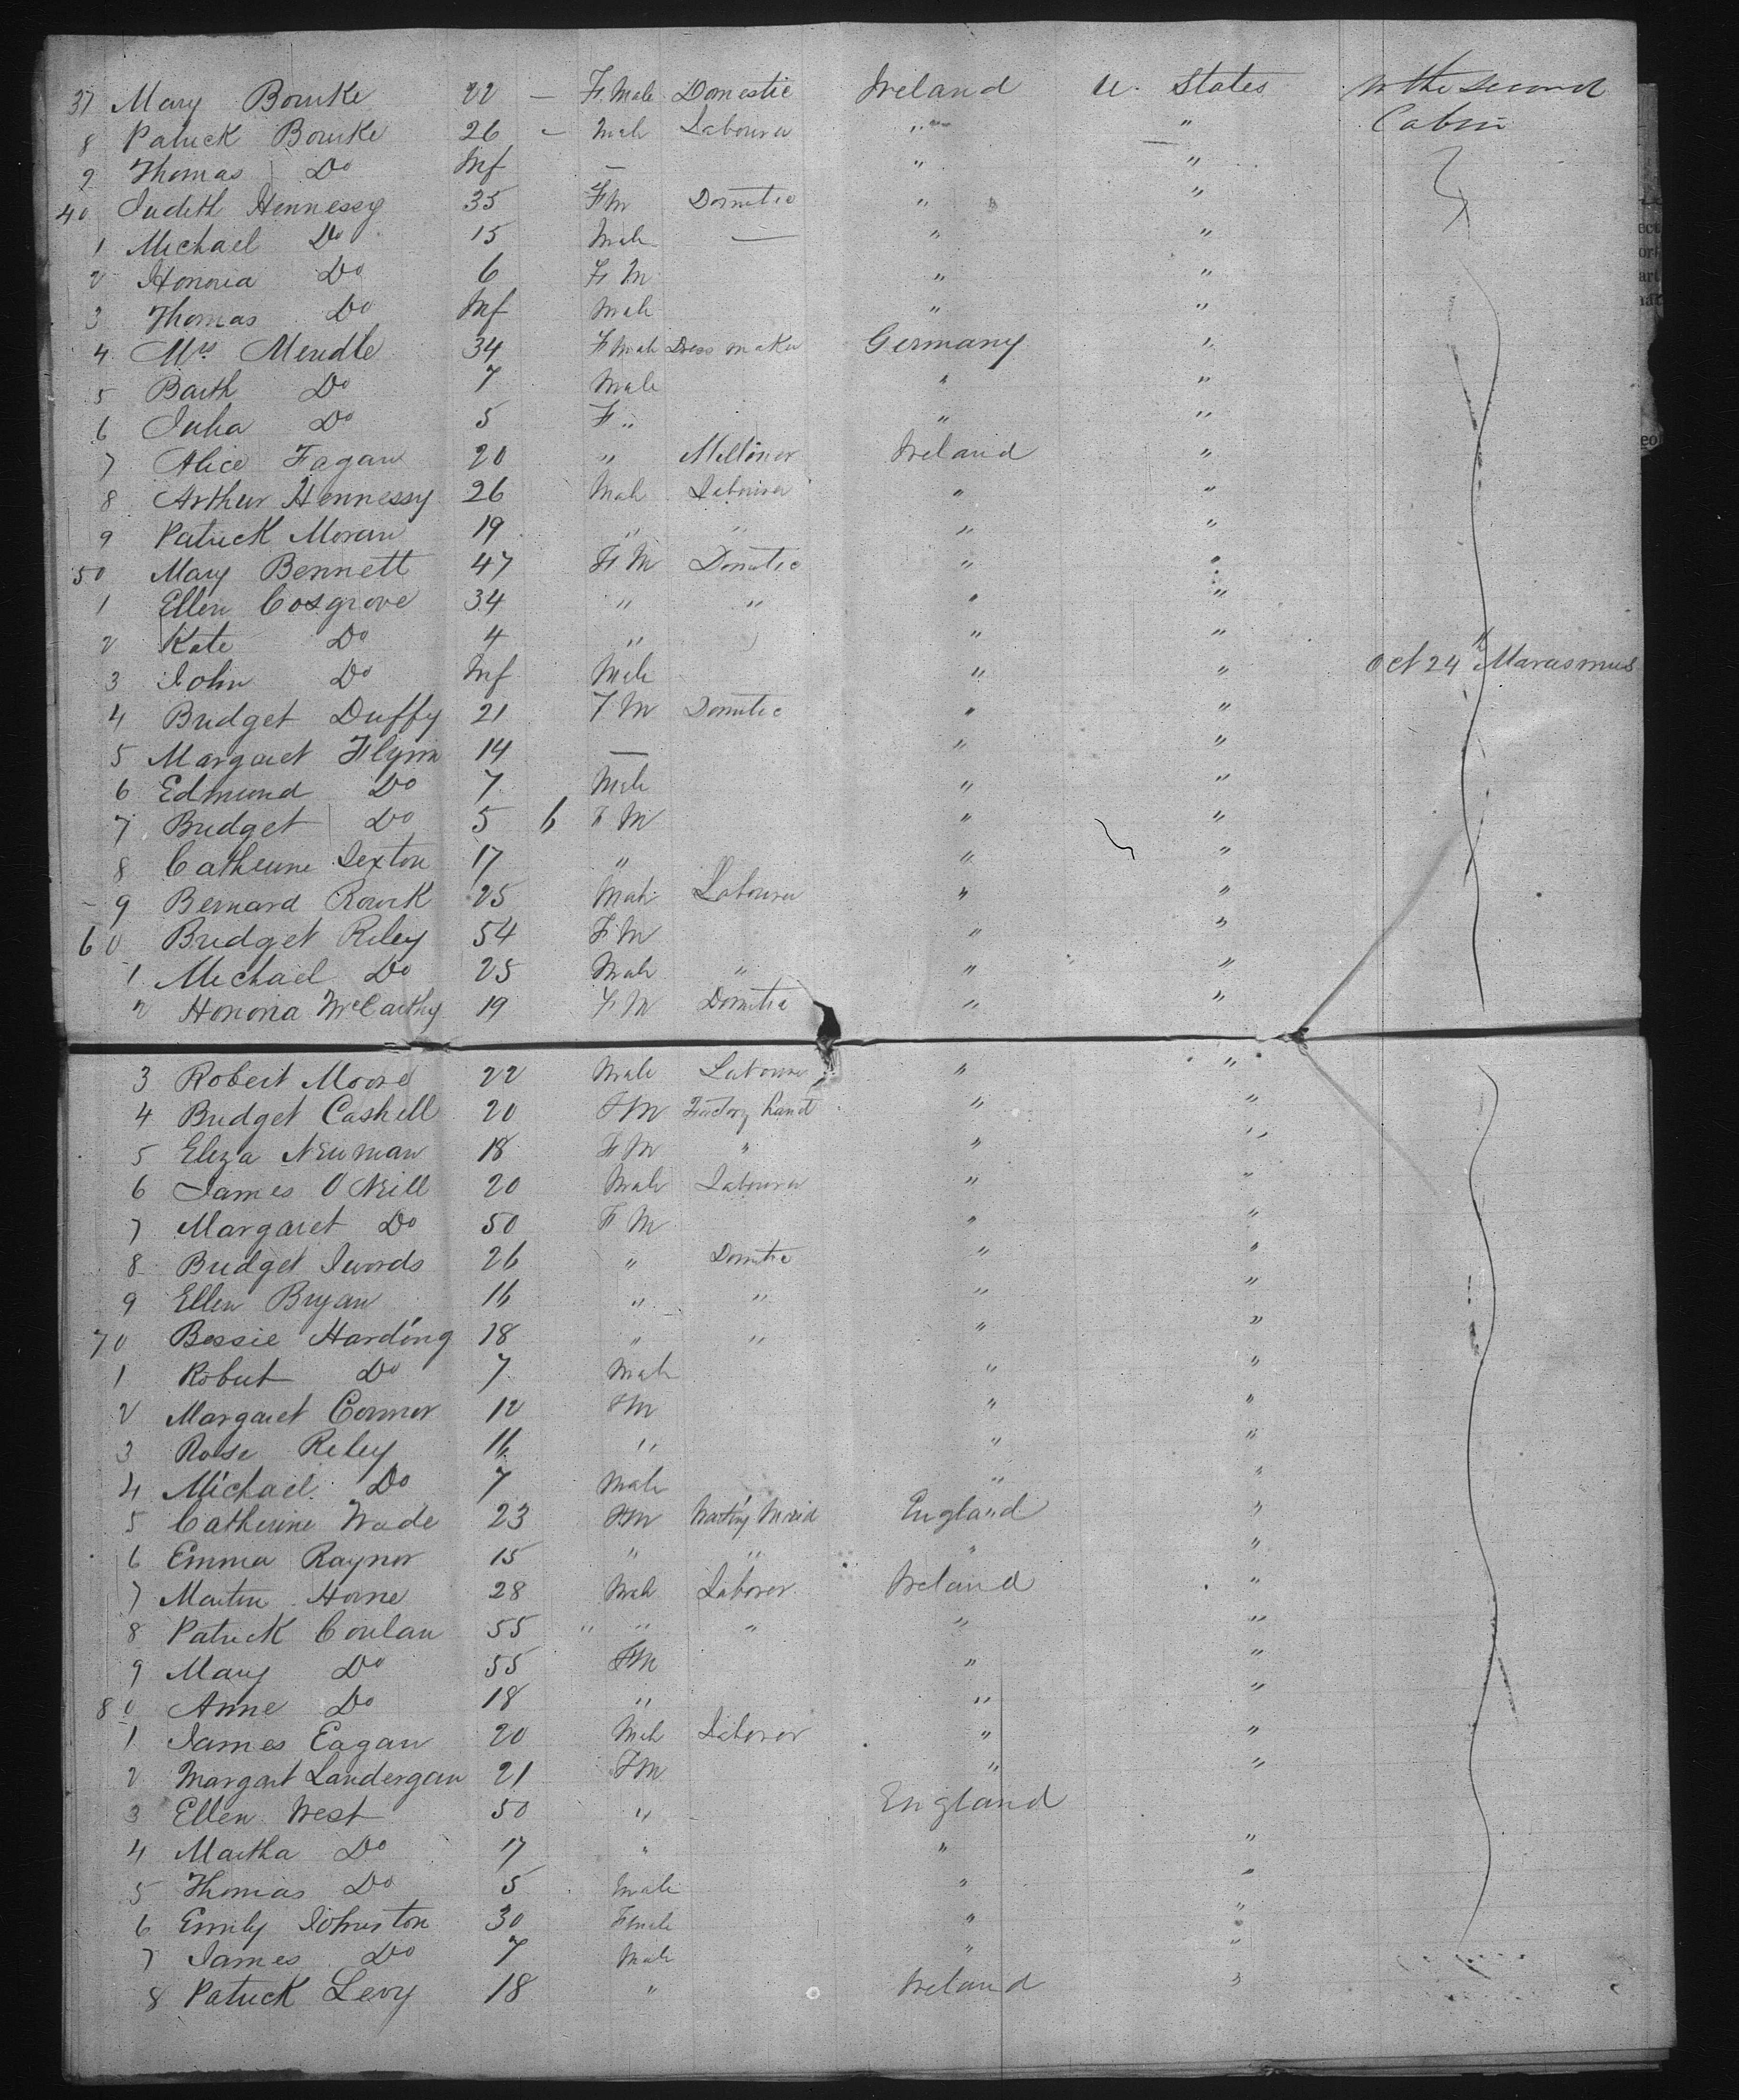 37 Mary Bourke 22 — F. Male Domestic Ireland U. States In the second
8 Patrick Bourke 26 — Male Labourer " " Cabin
9 Thomas Do Inf — " "
40 Judith Hennessy 35 FM Domestic " "
1 Michael Do 15 Male — " "
2 Honoria Do 6 F M " "
3 Thomas Do Inf Male " "
4 Mrs Mendle 34 F Male Dress maker Germany "
5 Barth Do 7 Male " "
6 Julia Do 5 F " " "
7 Alice Fagan 20 " Milliner Ireland "
8 Arthur Hennessy 26 Male Labourer " "
9 Patrick Moran 19 " " " "
50 Mary Bennett 47 F M Domestic " "
1 Ellen Cosgrove 34 " " " "
2 Kate Do 4 " " "
3 John Do Inf Male " " Oct 24th Marasmus
4 Bridget Duffy 21 F M Domestic " "
5 Margaret Flynn 14 — " "
6 Edmund Do 7 Male " "
7 Bridget Do 5 6 F M " "
8 Catherine Sexton 17 " " "
9 Bernard Rourk 25 Male Labourer " "
60 Bridget Riley 54 F M " "
1 Michael Do 25 Male " " "
2 Honoria McCarthy 19 F M Domestic " "
3 Robert Moore 22 Male Labourer " "
4 Bridget Cashell 20 FM Factory hand " "
5 Eliza Newman 18 F M " " "
6 James O Neill 20 Male Labourer " "
7 Margaret Do 50 F M " "
8 Bridget Swords 26 " Domestic " "
9 Ellen Bryan 16 " " " "
70 Bessie Harding 18 " " " "
1 Robert Do 7 Male " "
2 Margaret Connor 12 FM " "
3 Rose Reley 16 " " "
4 Michael Do 7 Male " "
5 Catherine Wade 23 FM Waiting Maid England "
6 Emma Raynor 15 " " " "
7 Martin Horne 28 Male Laborer Ireland "
8 Patrick Conlan 55 " " " " "
9 Mary Do 55 FM " "
80 Anne Do 18 " " "
1 James Eagan 20 Male Laborer " "
2 Margart Landergan 21 FM " "
3 Ellen West 50 " England
4 Martha Do 17 " " "
5 Thomas Do 5 Male " "
6 Emily Johnston 30 Female " "
7 James Do 7 Male " "
8 Patrick Levy 18 " Ireland "